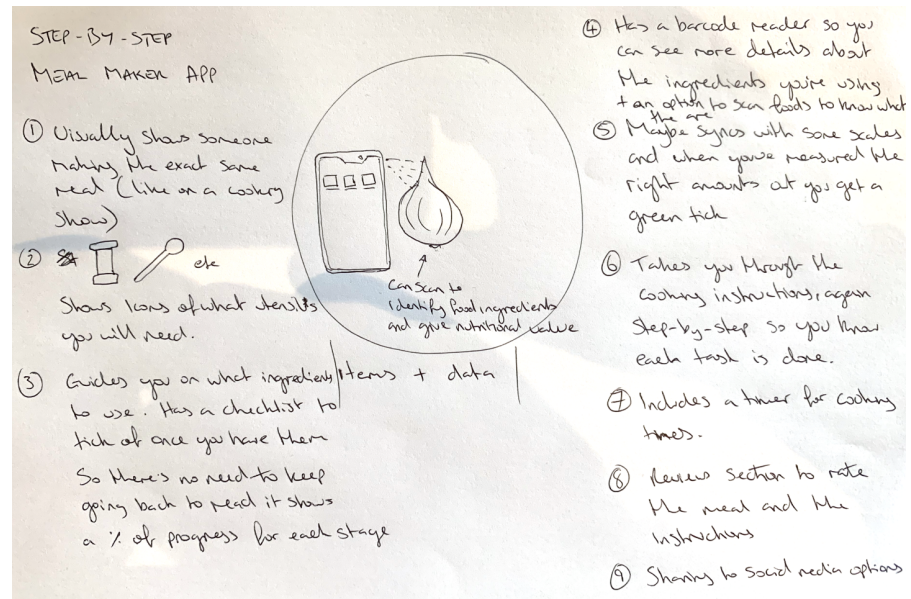 STEP-BY-STEP
MEAL MAKER APP
① Visually shows someone
making the exact same
meal (like on a cookery
show)
② etc
Shows Icons of what utensils
you will need.
③ Guides you on what ingredients
to use. Has a checklist to
tick of once you have them
So there's no need to keep
going back to read it shows
a % of progress for each stage
Can scan to
identify food ingredients
and give nutritional value
items + data
④ Has a barcode reader so you
can see more details about
the ingredients you're using
+ an option to scan foods to know what
the are
⑤ Maybe syncs with some scales
and when you've measured the
right amounts out you get a
green tick
⑥ Takes you through the
cooking instructions, again
step-by-step so you know
each task is done.
⑦ Includes a timer for cooking
times.
⑧ Review section to rate
the meal and the
Instructions
⑨ Sharing to social media options